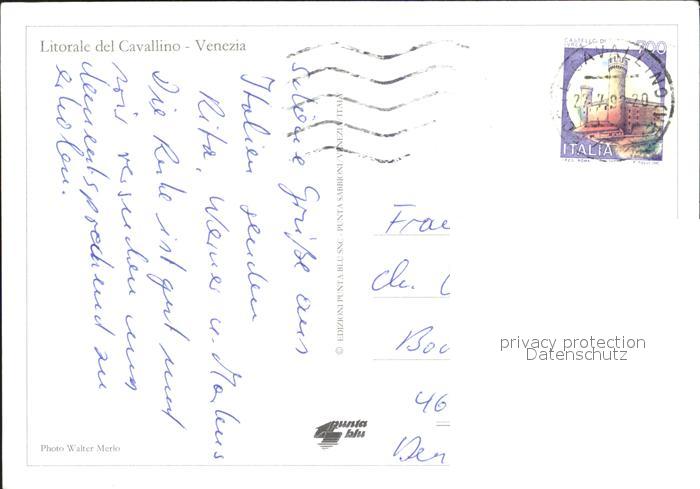 Litorale del Cavallino - Venezia
Schöne Grüße aus
Italien senden
Rita, Werner u. Markus
Die Reise ist gut und
wir versuchen uns
dementsprechend zu
erholen.
EDIZIONI PUNTA BLU SNC PUNTA SABBIONI VENEZIA ITALIA
©
CASTELLO DI
IVREA
700
ITALIA
Frau
Ch.
46
privacy protection
Datenschutz
punta
blu
Photo Walter Merlo